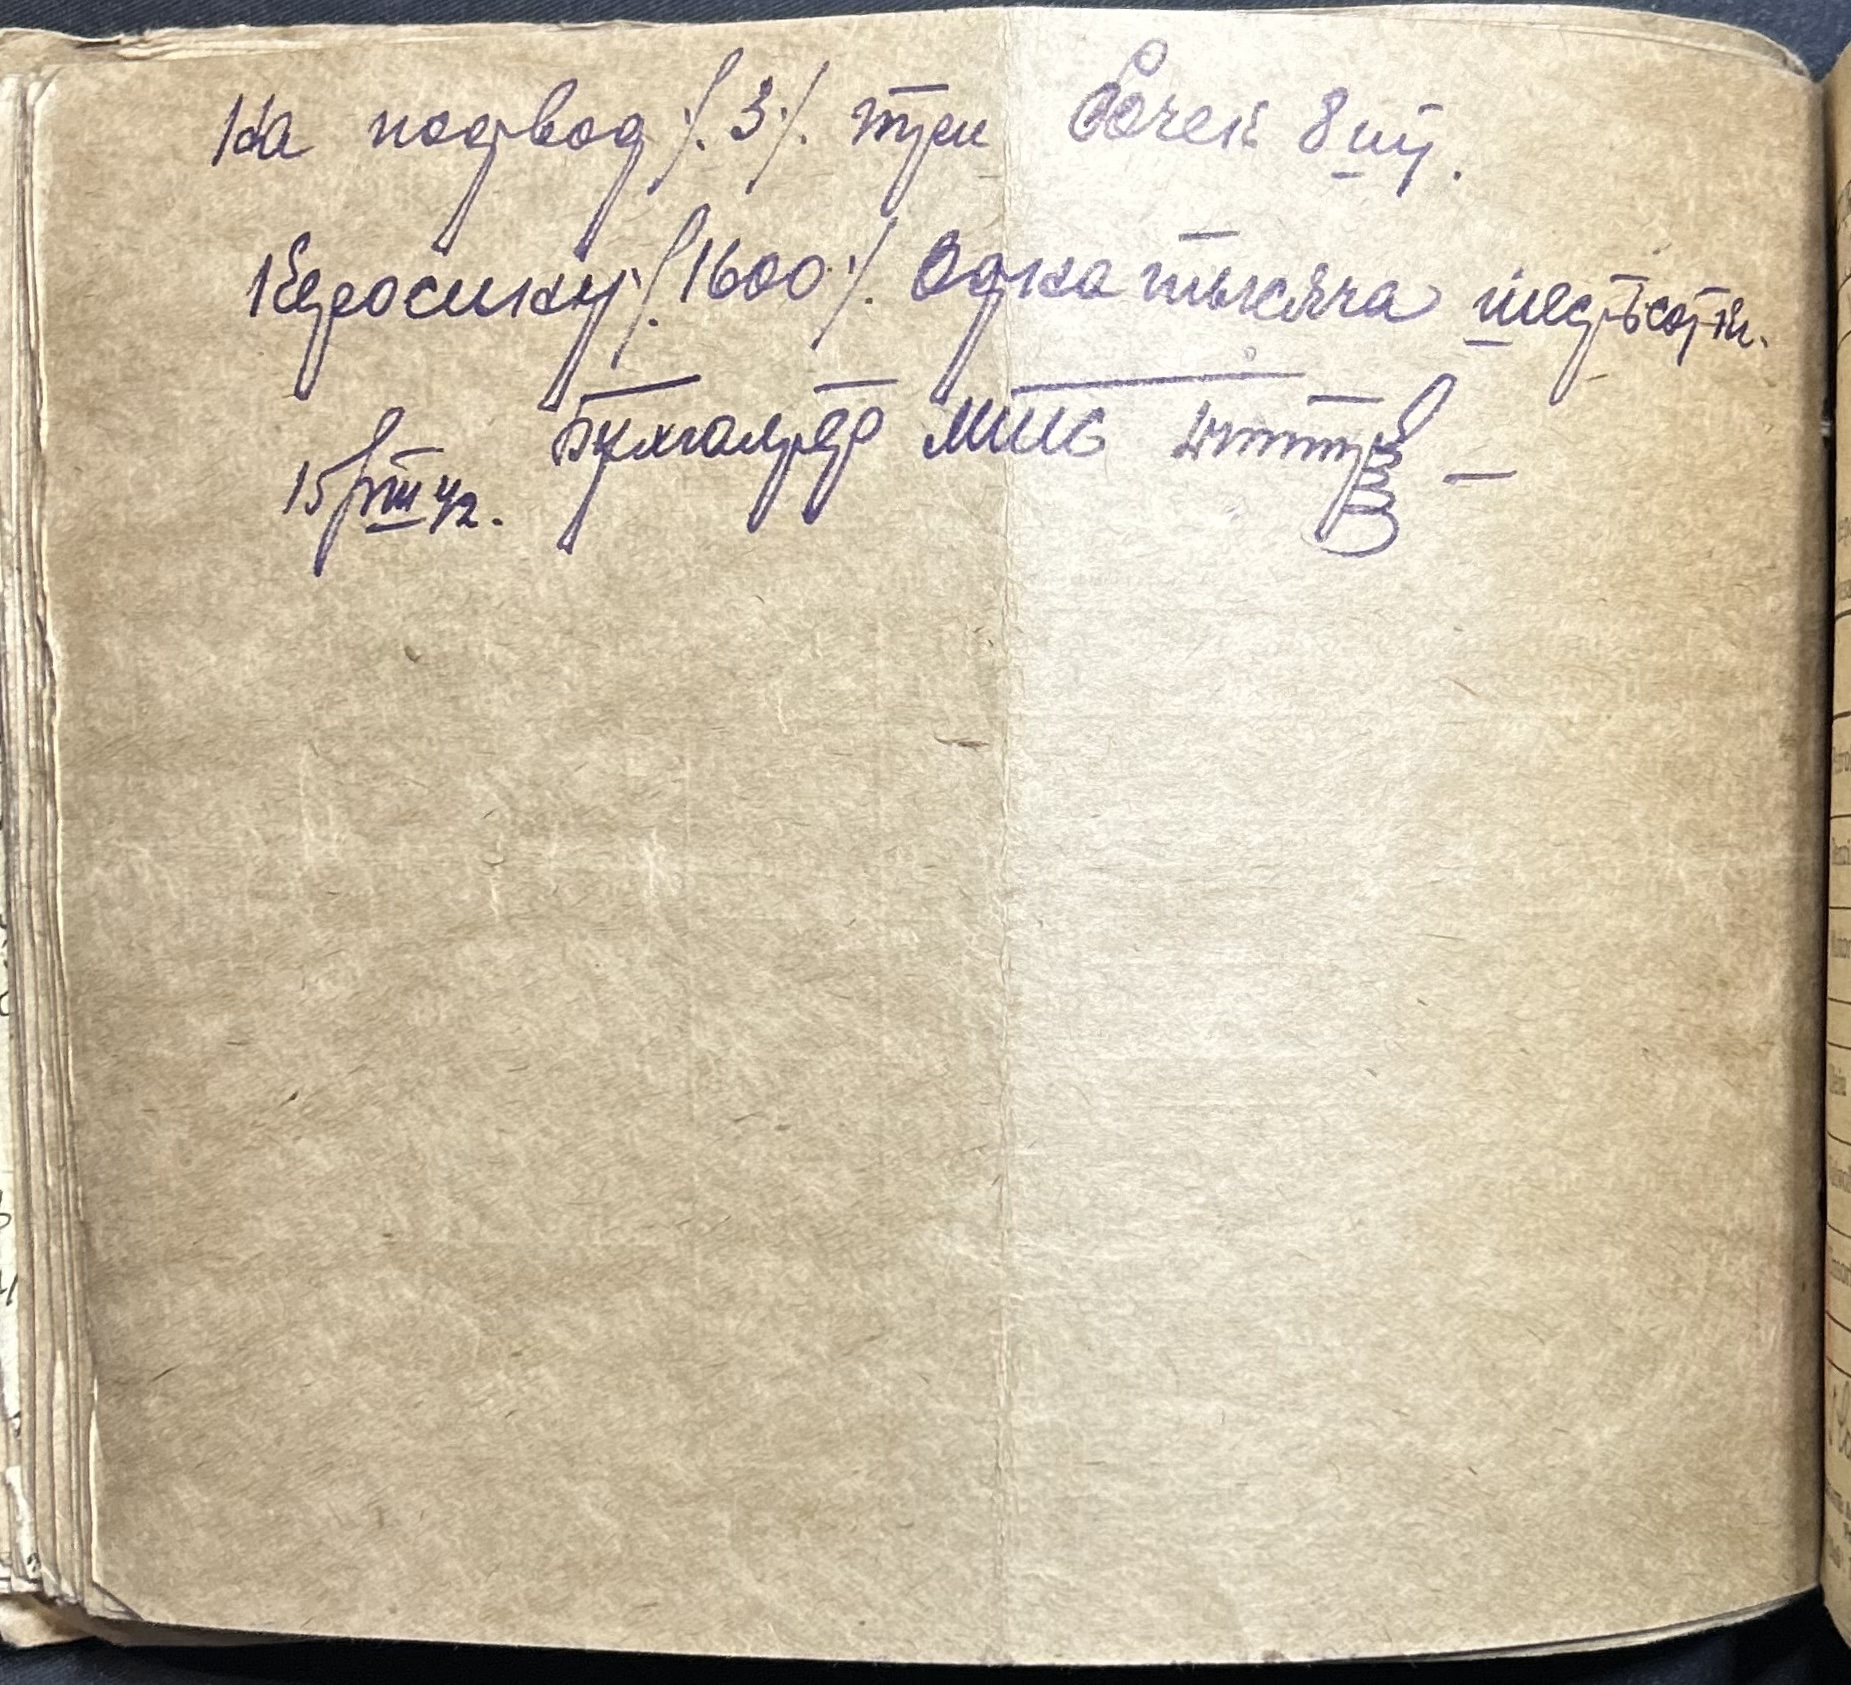 На подвод /.3./. три бочек 8 шт.
Керосину /.1600./. Одна тысяча шестьсот кг.
15/VIII 42. Бухгалтер МТС